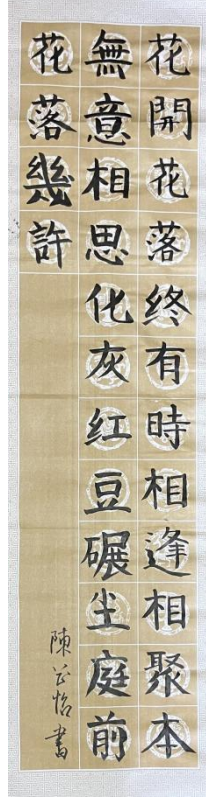 花開花落终有時相逢相聚本
無意相思化灰红豆碾尘庭前
花落幾許
陳怡書